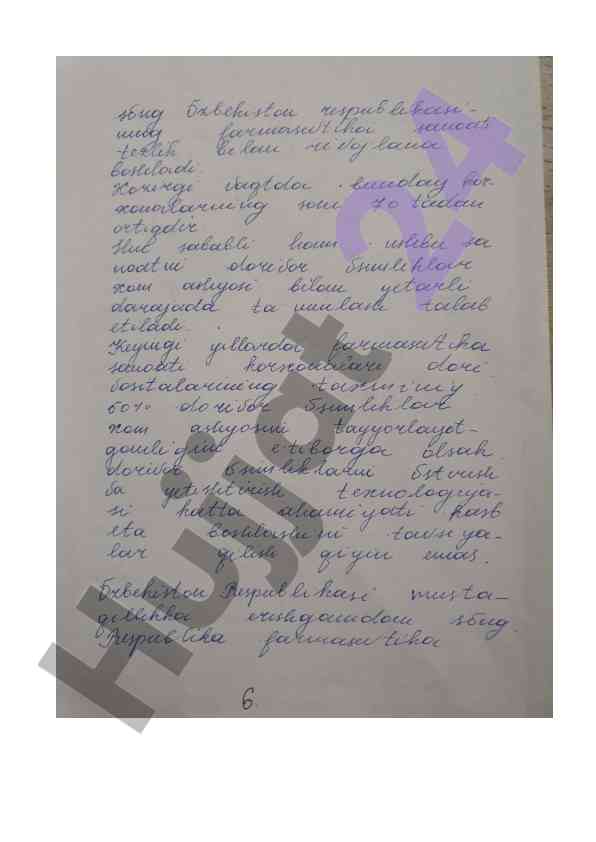 sŏng Ŏzbekiston respublikasi-
ning farmasevtika sanoati
tezlik bilan rivojlana
boshladi.
Xozirgi vaqtda bunday kor-
xonalarning soni 70 tadan
ortiqdir
Shu sababli ham ushbu sa
noatni dorivor ŏsimliklar
xom ashyosi bilan yetarli
darajada ta'minlash talab
etiladi.
Keyingi yillarda farmasevtika
sanoati korxonalari dori
vositalarining taxminiy
60% dorivor ŏsimliklar
xom ashyosini tayyorlayot-
ganligini etiborga olsak
dorivor ŏsimliklarni ŏstirish
va yetishtirish texnologiya-
si katta ahamiyati kasb
eta boshlashini tavsiya-
lar qilish qiyin emas.
Ŏzbekiston Respublikasi musta-
qillikka erishgandan sŏng
Respublika farmasevtika
6.
Hujjat 24